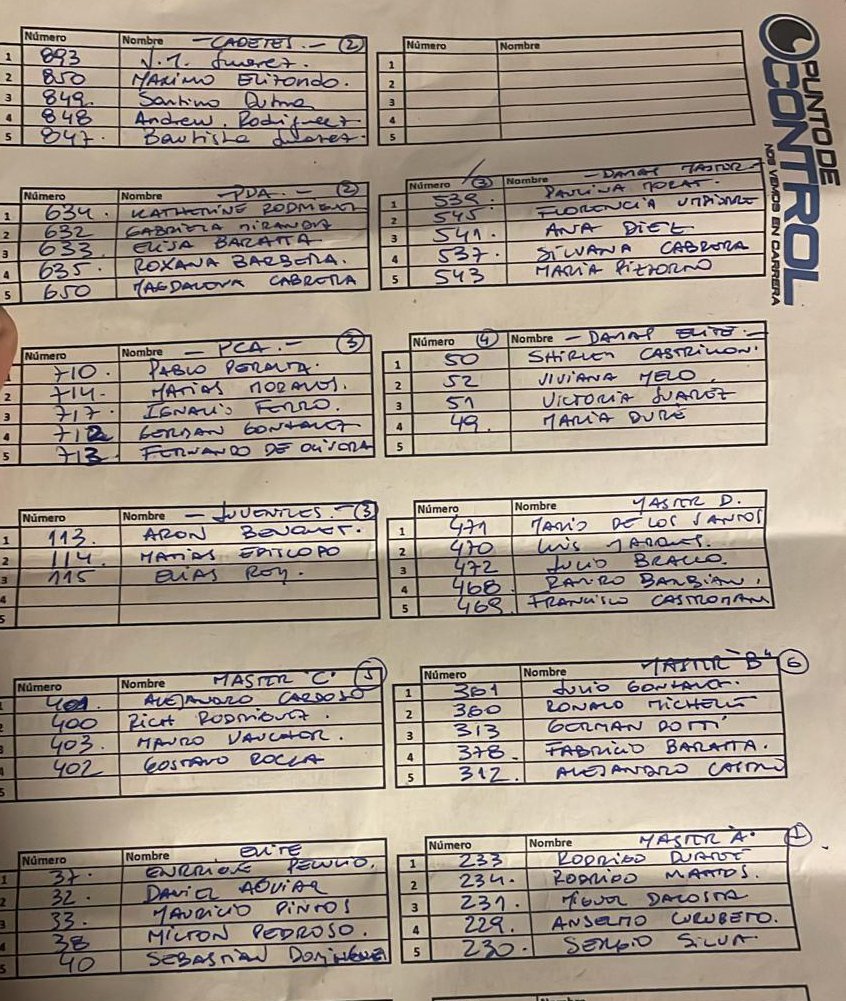 PUNTO DE
CONTROL
NOS VEMOS EN CARRERA
Número Nombre - CADETES. - (2)
1 893 Suarez.
2 850 MAXIMO ELIZONDO.
3 849. Santino Dutra
4 848 Andrew. Rodriguez
5 847. Bautista Suarez.
Número Nombre
1
2
3
4
5
Número Nombre - PDA. - (2)
1 634. KATHERINE RODRIGUEZ
2 632 GABRIELA MIRANDA
3 633 ELISA BARATTA
4 635. ROXANA BARBERA.
5 650 MAGDALENA CABRERA
Número (3) Nombre - DAMAS MASTER
1 539. PAULINA MORAT.
2 545. FLORENCIA
3 541. ANA DIEZ
4 537. SILVANA CABRERA
5 543 MARIA PIZZORNO
Número Nombre - PCA. - (3)
1 710. PABLO PERALTA.
2 714. MATIAS MORALES.
3 717. IGNACIO FERRO.
4 712 GERMAN GONZALEZ
5 713. FERNANDO DE OLIVERA
Número (4) Nombre - DAMAS ELITE. -
1 50 SHIRLEY CASTRILLON.
2 52 VIVIANA MELO.
3 51 VICTORIA SUAREZ
4 49. MARIA DURÉ
5
Número Nombre - JUVENILES. - (3)
1 113. ARON BENQUET.
2 114. MATIAS EPISCOPO
3 115 ELIAS REY.
4
5
Número Nombre MASTER D.
1 471 MARIO DE LOS SANTOS
2 470 LUIS MARQUES.
3 472 JULIO BRACCO.
4 468. RAMIRO BARBIAN.
5 469. FRANCISCO CASTROMAN
Número Nombre MASTER "C" (5)
1 401 ALEJANDRO CARDOSO
2 400 RICH RODRIGUEZ.
3 403. MAURO
4 402 GUSTAVO ROCCA
5
Número Nombre MASTER "B" (6)
1 361 JULIO GONZALEZ.
2 360 RONALD MICHELE
3 313 GERMAN DOTTI
4 378. FABRICIO BARATTA.
5 312. ALEJANDRO CASTRO
Número Nombre ELITE
1 37. ENRRIQUE PELULLO.
2 32. DANIEL AGUIAR
3 33. MAURICIO PINTOS
4 38 MILTON PEDROSO.
5 40 SEBASTIAN DOMINGUEZ
Número Nombre MASTER "A" (1)
1 233 RODRIGO DUARTE
2 234. RODRIGO MARTOS.
3 231. MIGUEL DACOSTA
4 229. ANSELMO CURUBETO.
5 230. SERGIO SILVA.